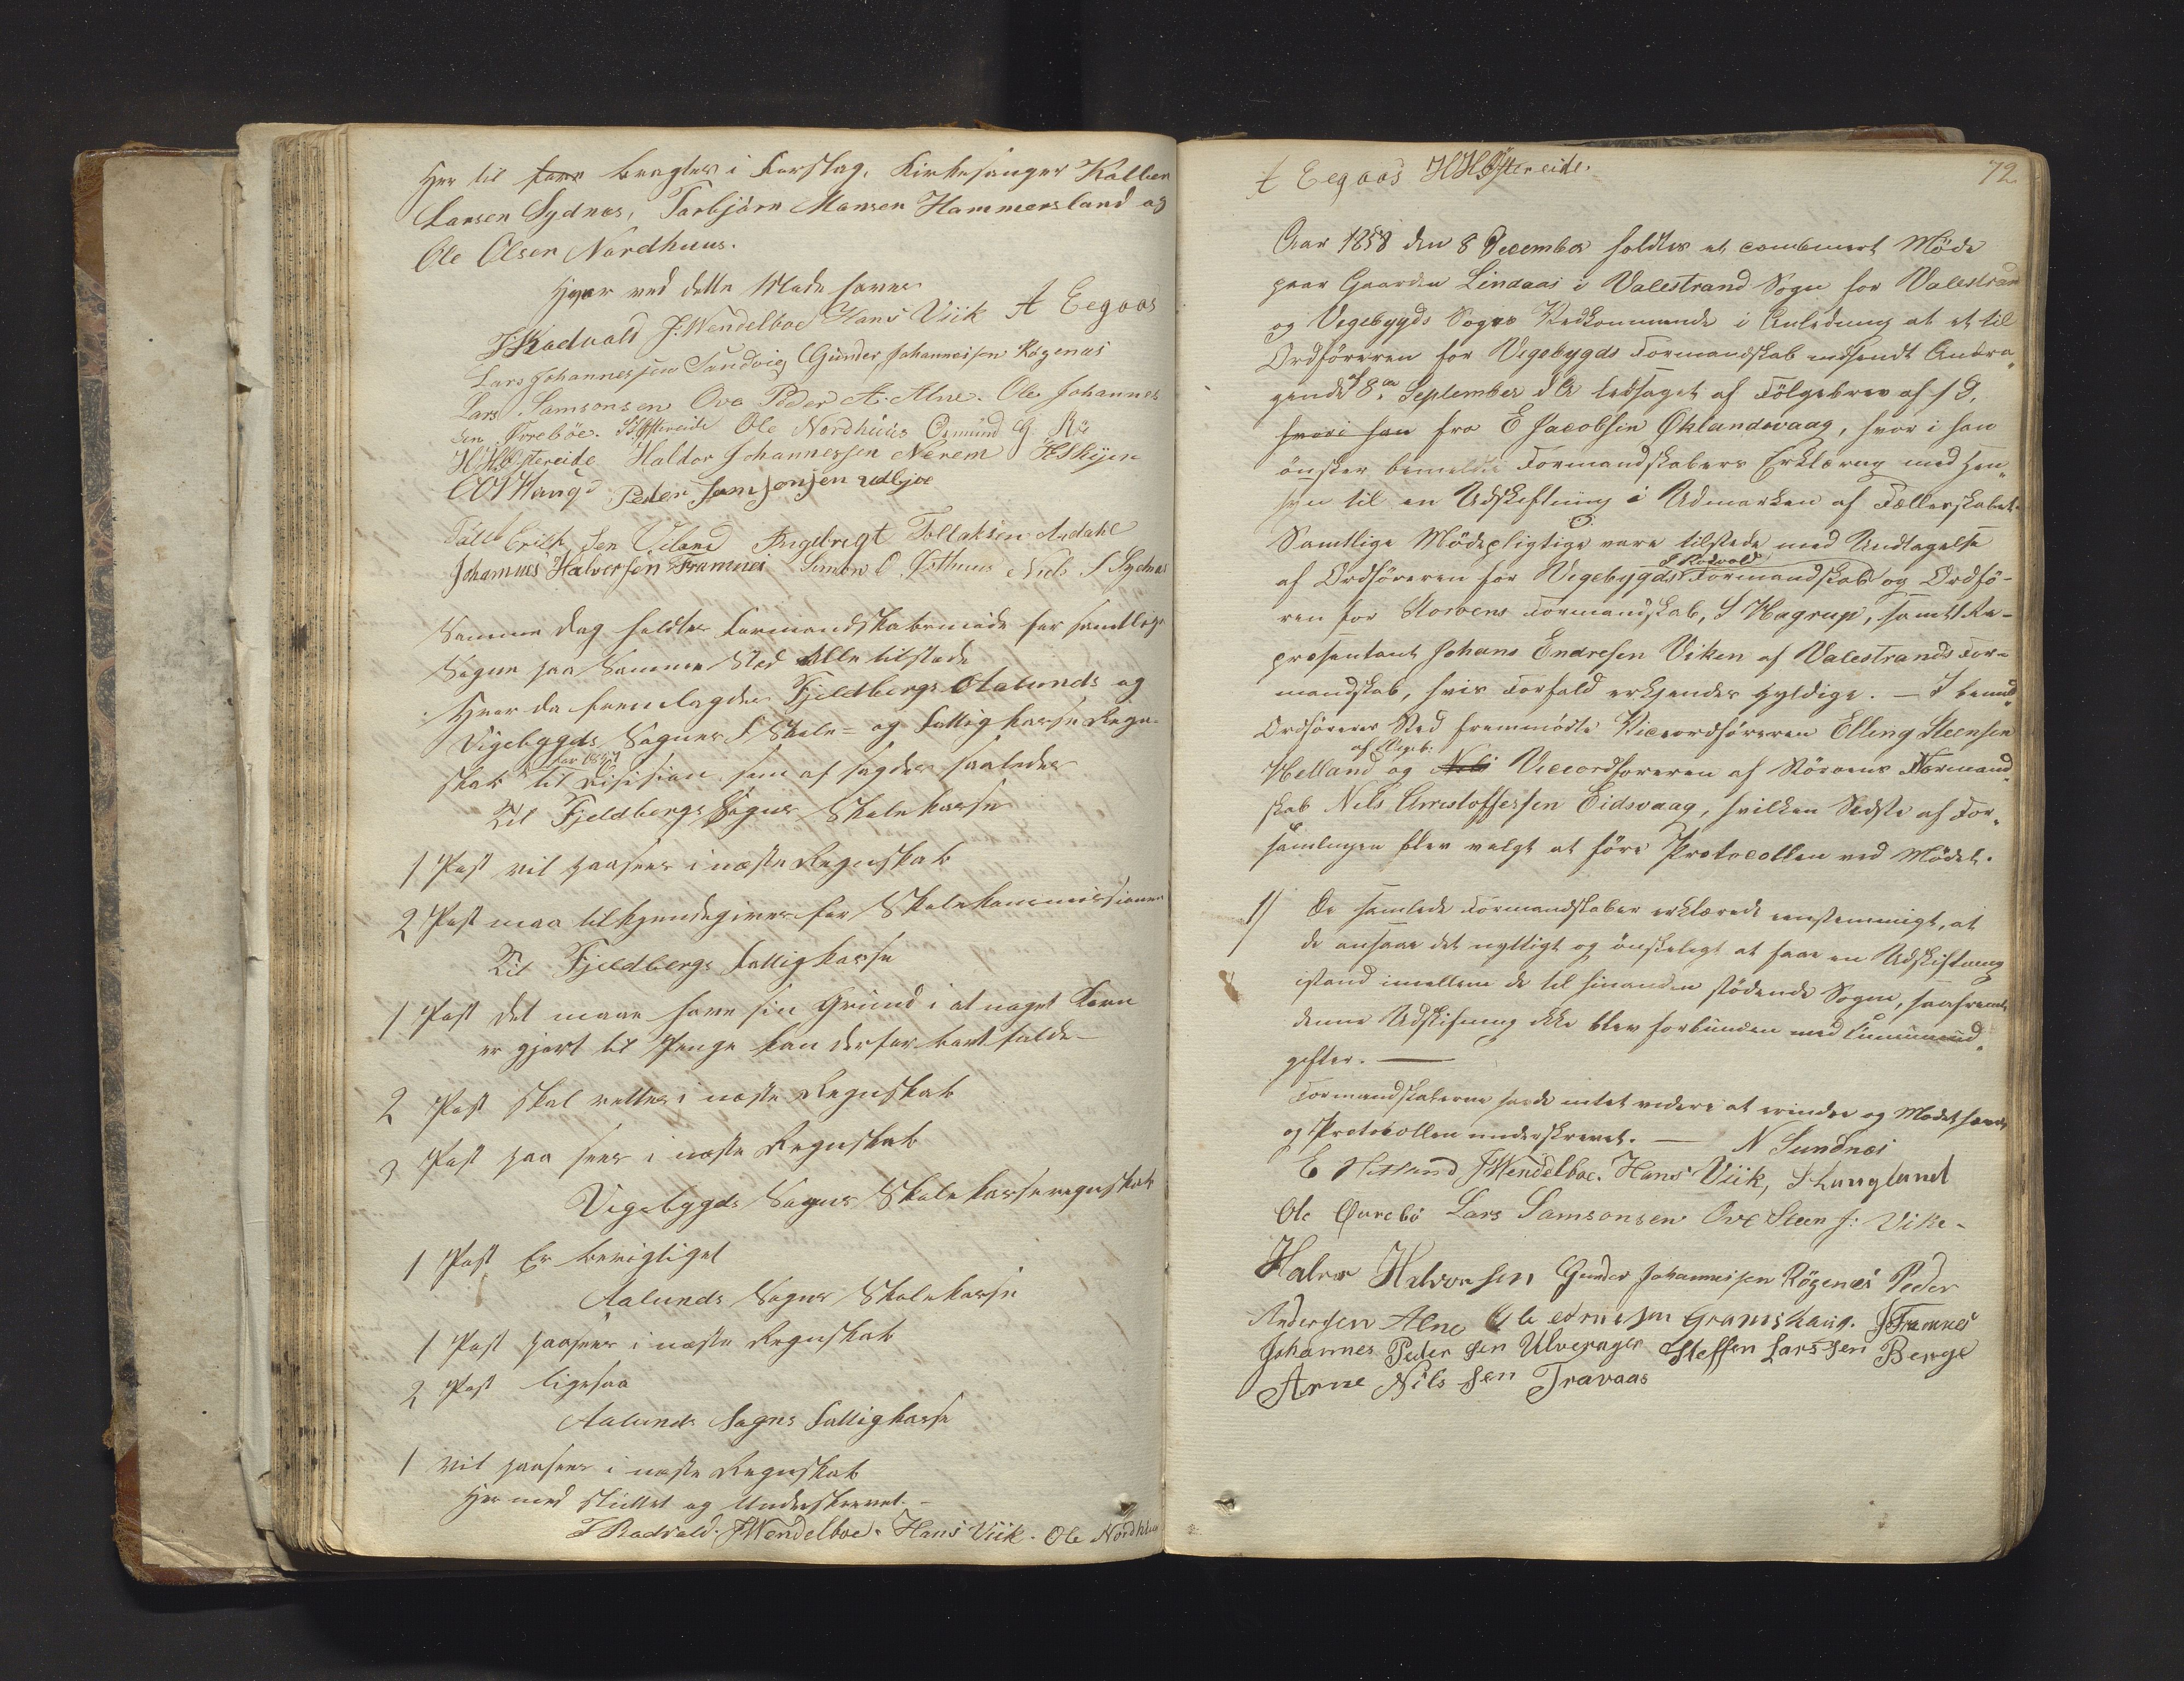 Her til fore bragtes i Forslag, Kirkesanger Kolben
Larsen Sydnæs, Torbjörn Monsen Hammersland og
Ole Olsen Nordhuus.
Hver ved dette Møde hæves
T Rødvald J. Wendelboe Hans Viik A Eegaas
Lars Johannessen Sandvig Gunder Johannessen Røgenæs
Lars Samsonsen Ove Peder A. Alne. Ole Johannes
sen Tvrebøe. Østereide Ole Nordhuus Osmund G Rö
H H Østereide Haldor Johannessen Nerem
Peder Samsonsen Udbjoe
Erik sen Viland Ingebrigt Tollaksen Ardahl
Johannes Halversen Framnes Simon O Østhuus Niels S Sydnæs
Samme Dag holdtes Formandskabsmøde for samtlige
Sogne paa Samme Sted Alle tilstæde
Hvor da fremlagdes Fjeldbergs Ølalunds og
Vigebygds Sognes Skole- og Fattigkasse Regn-
skab for 1857 til Revision som af sagdes saaledes
Til Fjeldbergs Sogns Skolekasse
1 Post vil paasees i næste Regnskab
2 Post maa tilkjendegives for Skolekommissionen
Til Fjeldbergs Fattigkasse
1 Post det maae have sin Grund i at noget Korn
er gjort til Penge kan derfor bortfalde
2 Post skal rettes i næste Regnskab
3 Post paa sees i næste Regnskab
Vigebygds Sogns Skolekasseregnskab
1 Post Er berigtiget
Aalunds Sogns Skolekasse
1 Post paasees i næste Regnskab
2 Post ligesaa
Aalunds Sogns Fattigkasse
1 vil paasees i næste Regnskab
Her med sluttet og Underskrevet.
T Rødvald. J Wendelboe. Hans Viik. Ole Nordhuu
A Eegaas H H Østereide.
72
Aar 1858 den 8 December holdtes et combinert Møde
paa Gaarden Lindaas i Valestrand Sogn for Valestrand
og Vigebygds Sognes Vedkommende i Anledning at et til
Ordföreren for Vigebygds Formandskab indsendt Andra
gende af 8de September d A ledsaget af Fölgebrev af s D,
hvori han fra E Jacobsen Øklandsvaag, hvor i han
önsker bemeldte Formandskabers Erklæring med Hen
syn til en Udskiftning i Udmarken af Fællesskabet.
Samtlige Mödepligtige vare tilstede med Undtagelse
af Ordföreren for Vigebygds Formandskab T Rødvold og Ordfö-
ren for Størens Formandskab, S Hagrup, samt Re-
præsentant Johans Endresen Viken af Valestrands For-
mandskab, hvis Forfald erkjendes gyldige. — I bemld
Ordföreres Sted fremmödte Viceordföreren Elling Steensen
Helland af Vigeb: og Nils Viceordføreren af Störens Formand
skab Nils Christoffersen Eidsvaag, hvilken Sidste af For
samlingen blev valgt at före Protocollen ved Mödet.
1/ De samlede Formandskaber erklærede eenstemmigt, at
de ansaae det nyttigt og önskeligt at faae en Udskiftning
istand imellem de til hinanden stödende Sogne, saafremt
denne Udskiftning ikke blev forbunden med
gifter. —
Formandskaberne havde intet videre at erindre og Mødet hævet
og Protokollen underskrevet. — N Sundnæs
E Helland J Wendelboe. Hans Viik, S Langland
Ole Øvrebö Lars Samsonsen Ove Steen J: Vike-
Halvor Halvorsen Gunder Johannesen Rögenæs Peder
Andersen Alne Ole Framnes
Johannes Peder sen Ulverager Steffen Lars sen Berge
Arne Nils sen Travaas